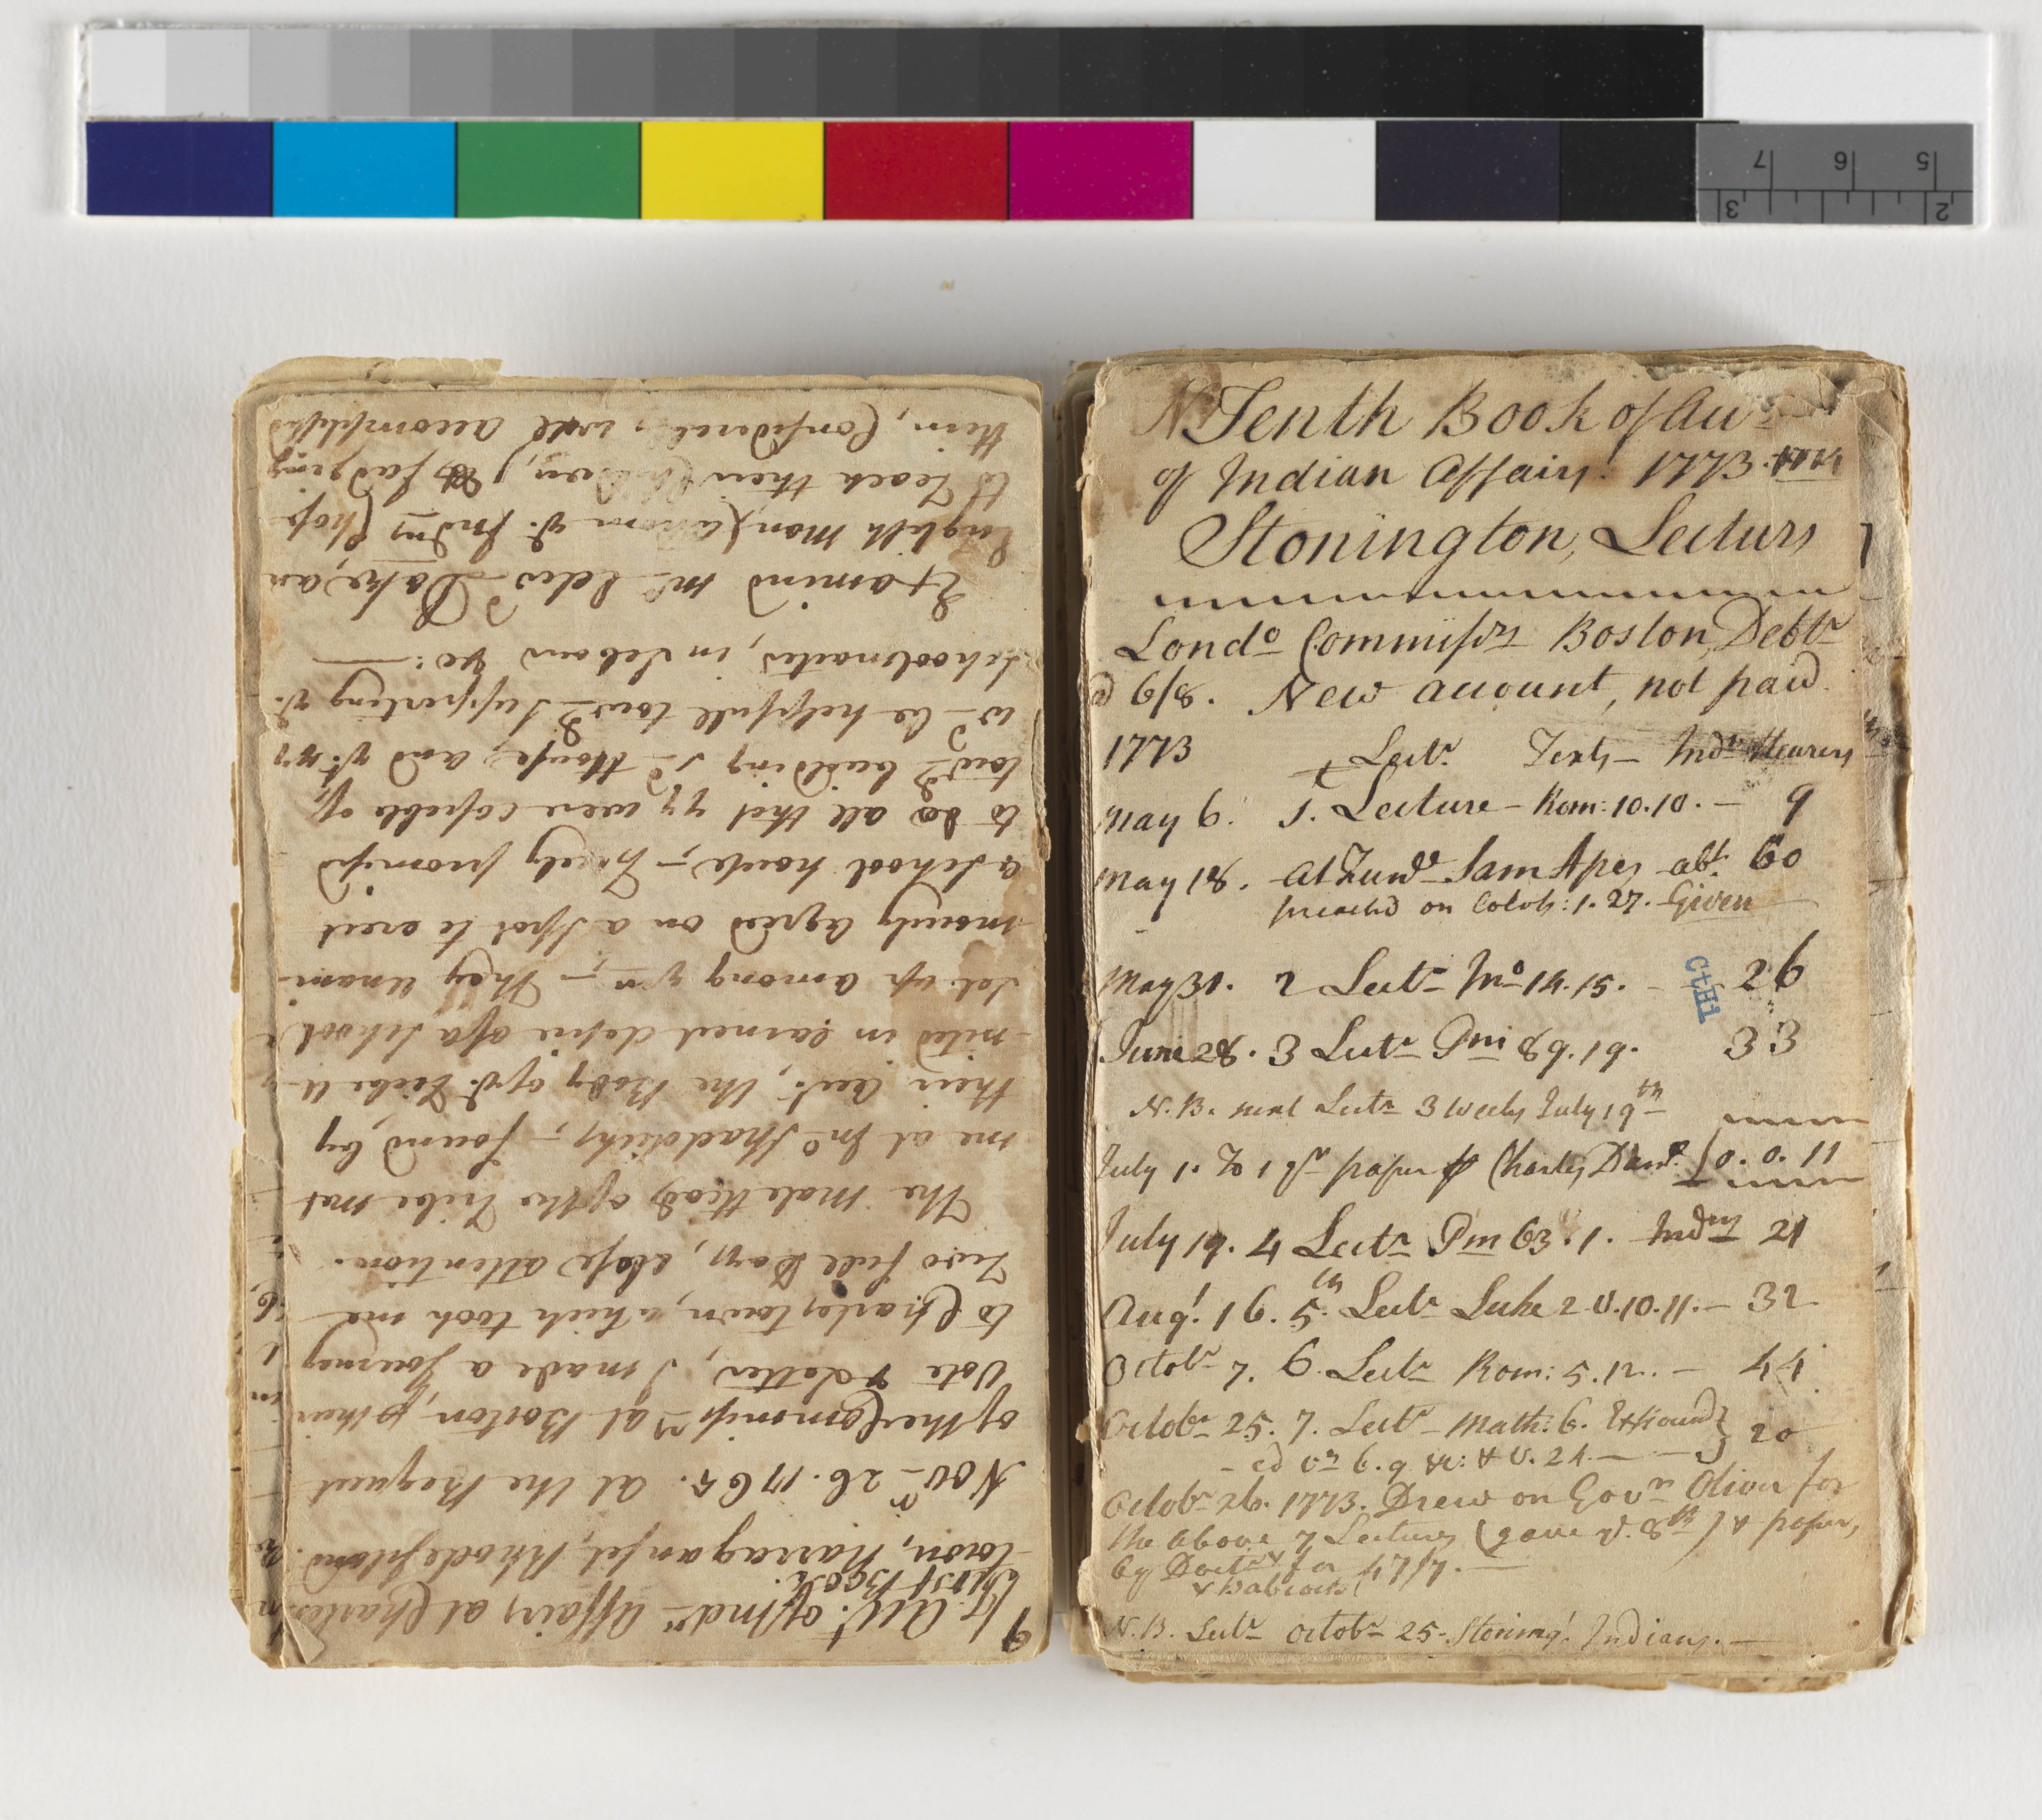 1st. Acct. of Indn Affairs at Charles-
First Book.
town, Narraganset, Rhode Island.
Novr 26. 1765. At the Request
of the Commissrs at Boston, p their
Vote & Letter, I made a Journey
to Charlestown, which took me
Two full Days, close attention.
The Male Heads of the Tribe met
me at Jno Shaddicks, found, by
their Acct. the Body of ye. Tribe u-
nited in earnest desire of a School
set up among ym –, They unani-
mously agreed on a Spot to erect
a School house, – Freely promisd
to do all that yy were capable of
towd building sd House, and yt. yy
wd be helpfull towd supporting ye.
Schoolmaster, in Labour &c: —
Examind Mr Edwd Deake, an
English Man (whom ye. Indns Chose
to Teach their Children, &
them, Considerably well accomplishd
N Tenth Book of Au
of Indian Affairs. 1773.
Stonington, Lecturs
Londo Commissrs Boston, Debtr
@ 6/8. New account, not paid.
1773 Lectr Texts – Indn Hearers
May 6. 1. Lecture – Rom: 10.10. – 9
May 18. at Funl Sam Apes abt. 60
preached on Coloss: 1.27. Given
May 31. 2 Lectr Jno 14.15. – 26
CtHi
June 28. 3 Lectr Psm 89.19. 33
N.B. next Lectr 3 weeks July 19th
July 1. To 1 qr paper p Charles Dan: 0.0.11
July 19. 4 Lectr Psm 63.1. Indns 21
Augt. 16. 5th. Lectr Luke 2 v.10.11. – 32
Octobr 7. 6. Lectr Rom: 5.12. – 44
Octobr 25. 7. Lectr – Math: 6. Expound } 20
– ed vrs 6.9 &c: & v. 24. —
Octobr 26. 1773. Drew on Govrn Oliver for
the above 7 Lectures (gave ye. 8th) & paper,
by Doctr for 47/7. —
& Babcock
N.B. Lectr Octobr 25 – Stoningt. Indians. —
7 6 5
3 2